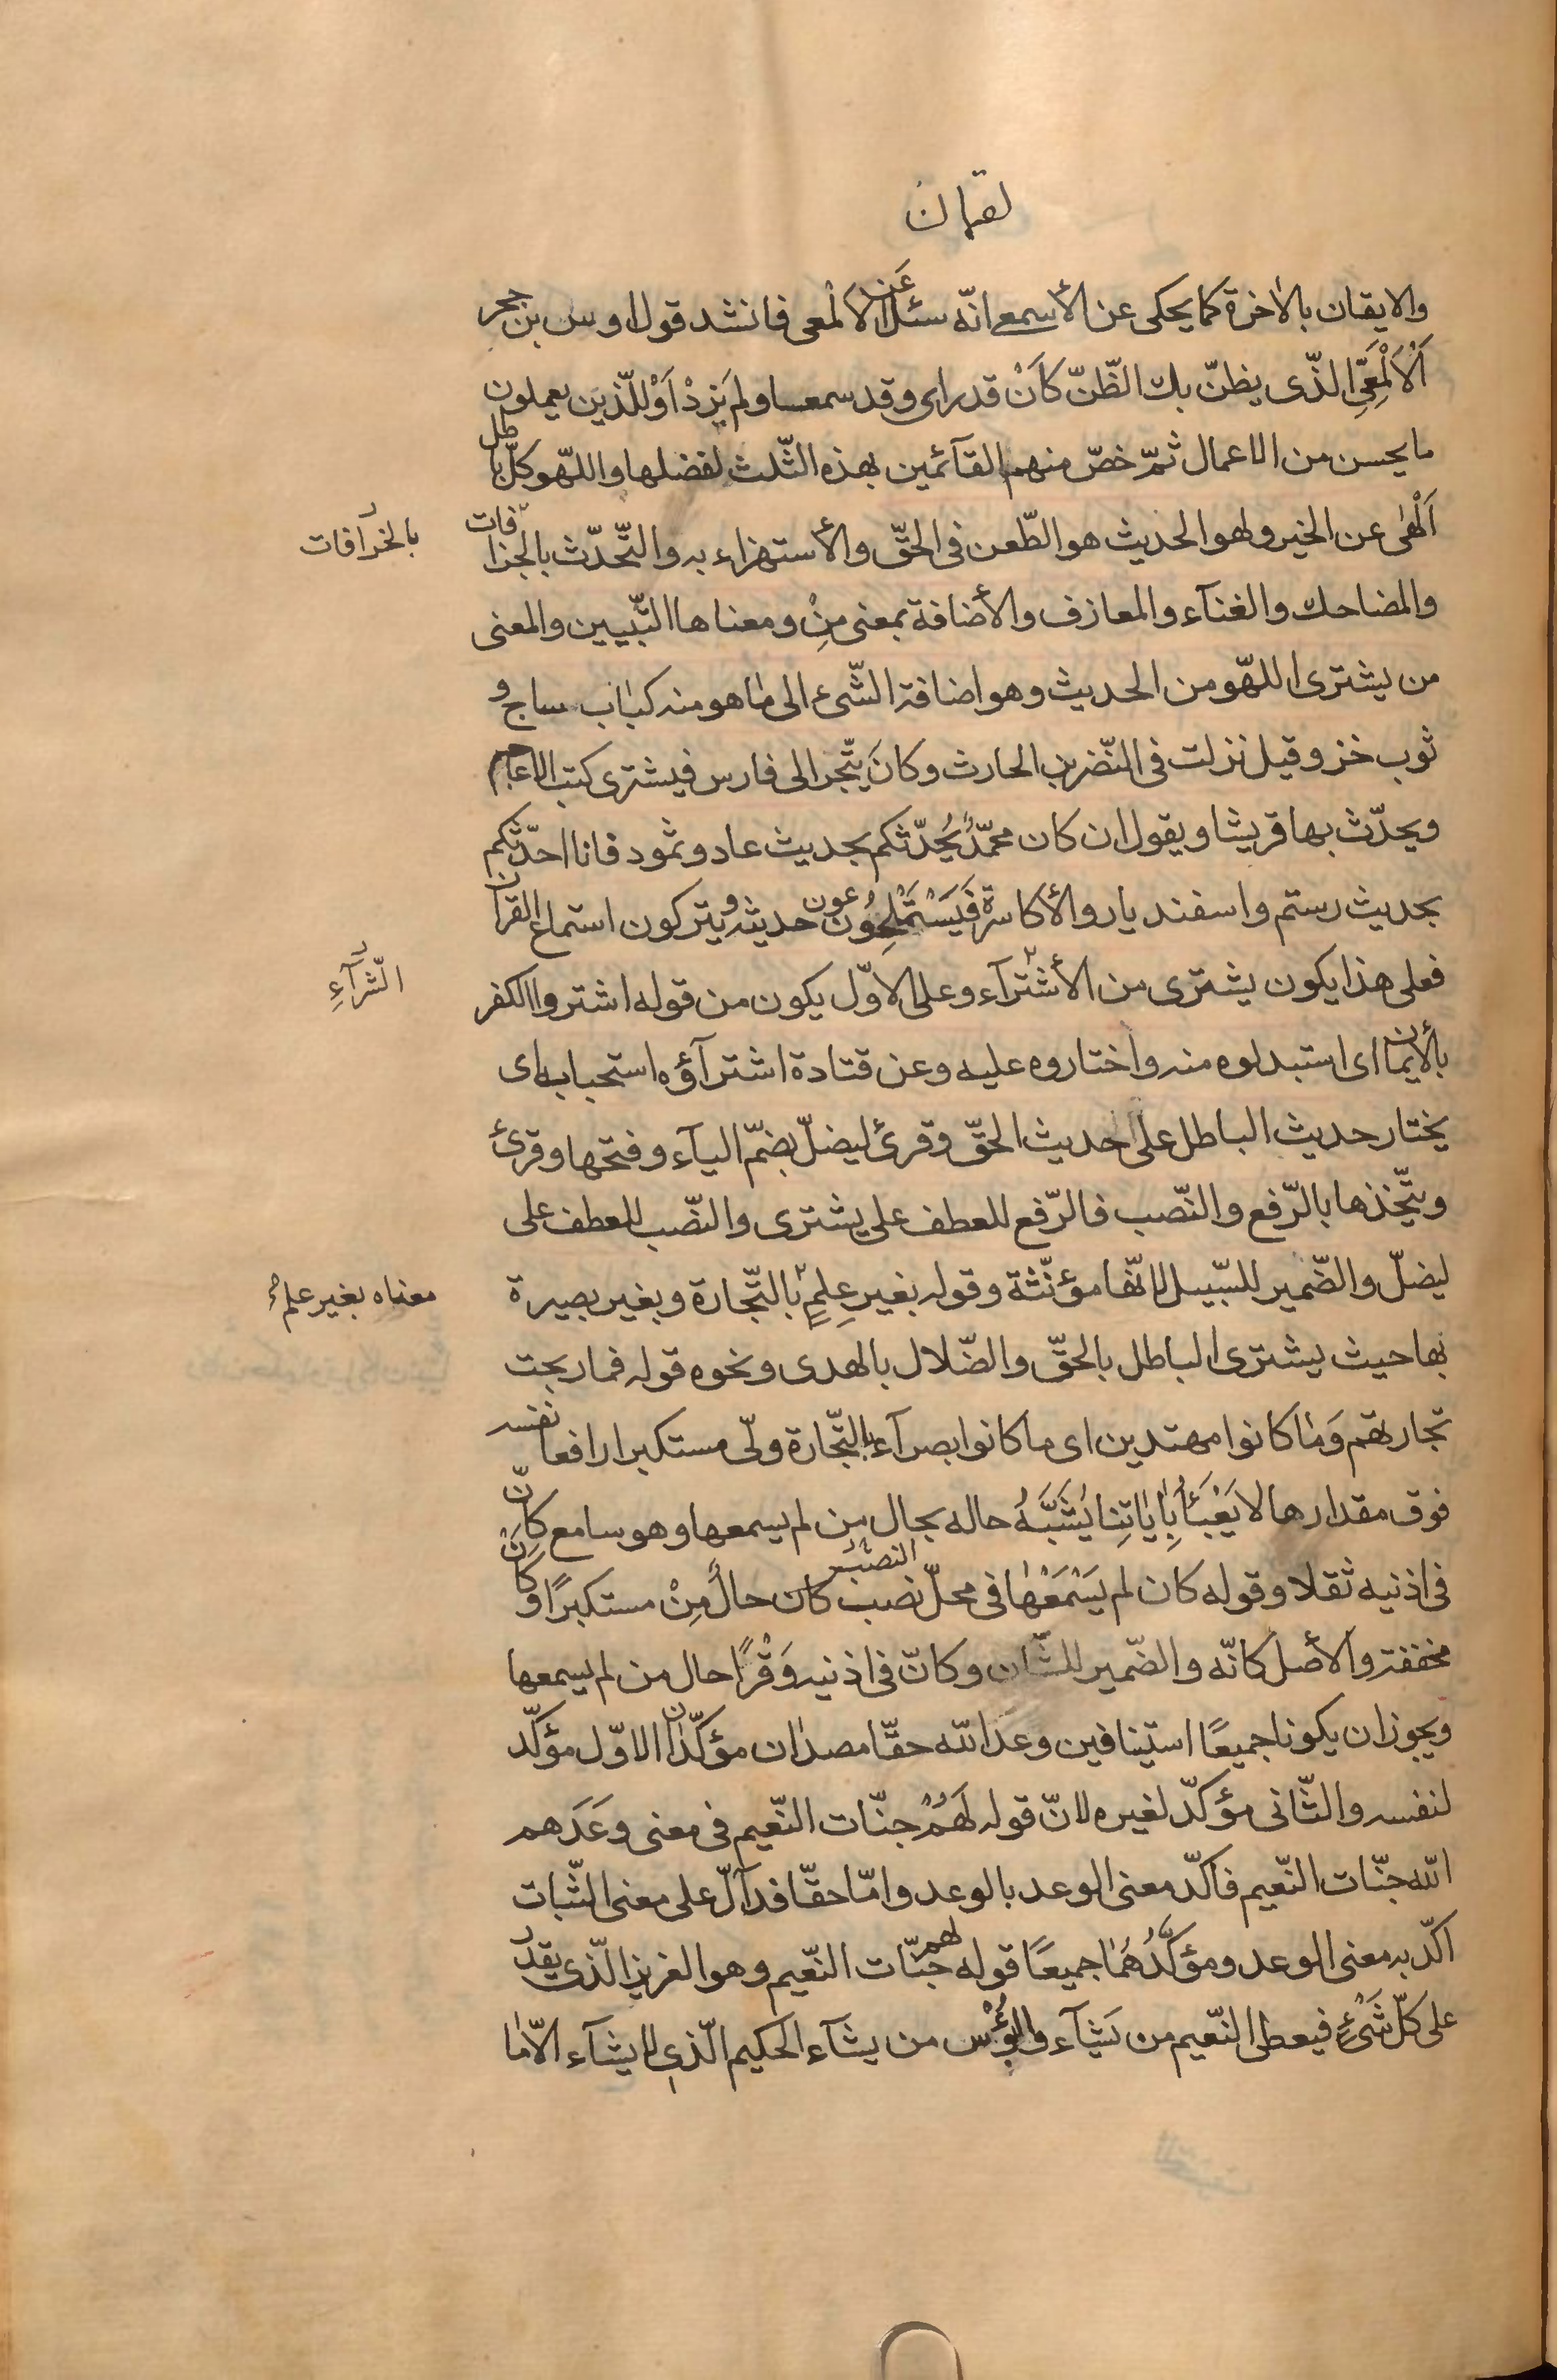 لقمان
والايقان بالاخرة كما يحكى عن الأسمعى انّه سئل عَن الالْمعى فانشد قول اوس بن حجر
اَلْاَلْمَعِّى الذّى يظنّ بك الظّنّ كاَنْ قد راى وقد سمعا ولم يَزِدْ اَوْ للّذين يعملون
ما يحسن من الاعمال ثمّ خصّ منهم القآئمين بهذه الثّلث لفضلها واللهّو كلّ باطل
اَلْهٰى عن الخير ولهو الحديث هو الطّعن فى الحقّ والأستهزاء به والتّحدّث بالجزافات
بالخرافات
والمضاحك والغنآء والمعازف والأضافة بمعنى مِنْ ومعناها التّبيين والمعنى
من يشترى اللهّو من الحديث وهو اضافة الشّىء الى ماٰ هو منه كباٰب ساج و
ثوب خز وقيل نزلت فى النّضر بن الحارث وكانَ يتّجر الى فارس فيشترى كتب الاعاجم
ويحدّث بها قريشا ويقول ان كان محمّدٌ يُحدّثكم بحديث عاد وثمود فانا احدّثكم
بحديث رستم واسفنديار والأكاسرة فَيَسْتَمْلِحُوُن حديثه ويتركون استماع القرآن
فعلى هذا يكون يشترى من الأشترآء وعلى الاوّل يكون من قوله اشتروا الكفر
الشّرآءِ
بالأيمان اى استبدلوه منه واختاروه عليه وعن قتادة اشترآؤه استحبابه اى
يختار حديث الباطل على حديث الحقّ وقرئ ليضلّ بضمّ اليآء وفتحها وقرئ
ويتّخذها بالرّفع والنّصب فالرّفع للعطف على يشترى والنّصب للعطف على
ليضلّ والضّمير للسّبيل لانّها مؤنّثة وقوله بغير عِلمٍ بالتّجارة وبغير بصيرة
معناه بغير علم
بها حيث يشترى الباطل بالحقّ والضّلال بالهدى ونحوه قوله فما ربحت
تجارتهم وَماٰ كانوا مهتدين اى ما كانوا بصرآء بالتّجارة ولّى مستكبرا رافعا نفسه
فوق مقدارها لا يَعْبَأُ بِاٰياٰتِنا يُشَبَّهُ حاله بحال من لم يسمعها وهو سامع كانّ
فى اذنيه ثقلا وقوله كان لم يَسْمَعْهاٰ فى محلّ نصب النصب كان حالٌ مِنْ مستكبرًا وكَاَنْ
مخففة والأصل كانّه والضّمير للشّان وكانّ فى اذنيه وَقْرًا حال من لم يسمعها
ويجوز ان يكونا جميعًا استينافين وعدَ الله حقّا مصدراٰن مؤكّداٰن الاوّل مؤكّد
لنفسه والثّانى مؤكّد لغيره لانّ قوله لَهُمْ جنّات النّعيم فى معنى وعَدَهم
الله جنّات النّعيم فاكّد معنى الوعد بالوعد وامّا حقّا فدآلّ على معنى الثّبات
اكّد به معنى الوعد ومؤكَّدُهُماٰ جميعًا قوله لهم جنّات النّعيم وهو العزيز الّذى يقدر
على كلّ شَىْءٍ فيعطى النّعيم من يَشآء والبُؤْس من يشآء الحكيم الّذى لا يشآء الّا ماٰ